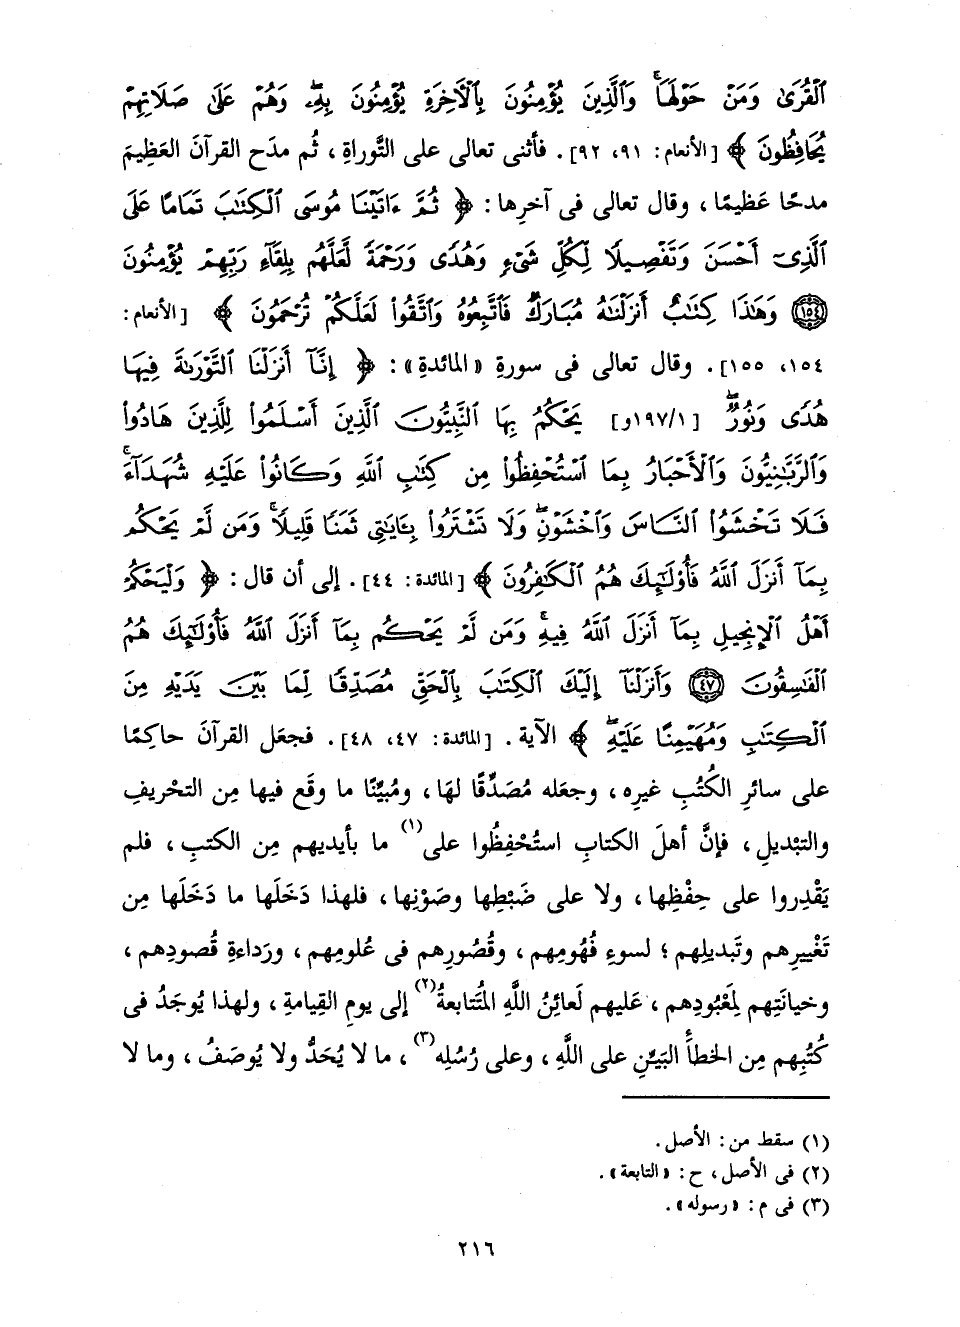 ٱلْقُرَىٰ وَمَنْ حَوْلَهَاۚ وَٱلَّذِينَ يُؤْمِنُونَ بِٱلْأَخِرَةِ يُؤْمِنُونَ بِهِۦۖ وَهُمْ عَلَىٰ صَلَاتِهِمْ
يُحَافِظُونَ ﴾ [الأنعام: ٩١، ٩٢]. فأثنى تعالى على التَّوراةِ، ثُم مدَح القرآنَ العَظِيمَ
مدحًا عَظيمًا، وقال تعالى فى آخرِها: ﴿ ثُمَّ ءَاتَيْنَا مُوسَى ٱلْكِتَٰبَ تَمَامًا عَلَى
ٱلَّذِىٓ أَحْسَنَ وَتَفْصِيلًا لِّكُلِّ شَىْءٍ وَهُدًى وَرَحْمَةً لَّعَلَّهُم بِلِقَآءِ رَبِّهِمْ يُؤْمِنُونَ
۝١٥٤ وَهَٰذَا كِتَٰبٌ أَنزَلْنَٰهُ مُبَارَكٌ فَٱتَّبِعُوهُ وَٱتَّقُوا۟ لَعَلَّكُمْ تُرْحَمُونَ ﴾ [الأنعام:
١٥٤، ١٥٥]. وقال تعالى فى سورةِ «المائدةِ»: ﴿ إِنَّآ أَنزَلْنَا ٱلتَّوْرَىٰةَ فِيهَا
هُدًى وَنُورٌۚ [١/١٩٧و] يَحْكُمُ بِهَا ٱلنَّبِيُّونَ ٱلَّذِينَ أَسْلَمُوا۟ لِلَّذِينَ هَادُوا۟
وَٱلرَّبَّٰنِيُّونَ وَٱلْأَحْبَارُ بِمَا ٱسْتُحْفِظُوا۟ مِن كِتَٰبِ ٱللَّهِ وَكَانُوا۟ عَلَيْهِ شُهَدَآءَۚ
فَلَا تَخْشَوُا۟ ٱلنَّاسَ وَٱخْشَوْنِۖ وَلَا تَشْتَرُوا۟ بِـَٔايَٰتِى ثَمَنًا قَلِيلًاۚ وَمَن لَّمْ يَحْكُم
بِمَآ أَنزَلَ ٱللَّهُ فَأُو۟لَٰٓئِكَ هُمُ ٱلْكَٰفِرُونَ ﴾ [المائدة: ٤٤]. إلى أن قال: ﴿ وَلْيَحْكُمْ
أَهْلُ ٱلْإِنجِيلِ بِمَآ أَنزَلَ ٱللَّهُ فِيهِۚ وَمَن لَّمْ يَحْكُم بِمَآ أَنزَلَ ٱللَّهُ فَأُو۟لَٰٓئِكَ هُمُ
ٱلْفَٰسِقُونَ ۝٤٧ وَأَنزَلْنَآ إِلَيْكَ ٱلْكِتَٰبَ بِٱلْحَقِّ مُصَدِّقًا لِّمَا بَيْنَ يَدَيْهِ مِنَ
ٱلْكِتَٰبِ وَمُهَيْمِنًا عَلَيْهِۖ ﴾ الآية. [المائدة: ٤٧، ٤٨]. فجعَل القرآنَ حاكِمًا
على سائرِ الكُتُبِ غيرِه، وجعَله مُصَدِّقًا لهَا، ومُبيِّنًا ما وقَع فيها مِن التحْريفِ
والتبْديلِ، فإنَّ أهلَ الكتابِ استُحْفِظُوا على(١) ما بأيديهم مِن الكتبِ، فلم
يَقْدِروا على حِفْظِها، ولا على ضَبْطِها وصَوْنِها، فلهذا دَخَلَها ما دَخَلَها مِن
تَغْييرِهم وتَبديلِهم؛ لسوءِ فُهُومِهم، وقُصُورِهم فى عُلومِهم، ورَداءةِ قُصودِهم،
وخيانَتِهم لِمَعْبُودِهم، عَليهم لَعائِنُ اللَّهِ المُتتابعةُ(٢) إلى يومِ القِيامةِ، ولهذا يُوجَدُ فى
كُتُبِهم مِن الخطأَ البَيِّنِ على اللَّهِ، وعلى رُسُلِه(٣)، ما لا يُحَدُّ ولا يُوصَفُ، وما لا
(١) سقط من: الأصل.
(٢) فى الأصل، ح: «التابعة».
(٣) فى م: «رسوله».
٢١٦